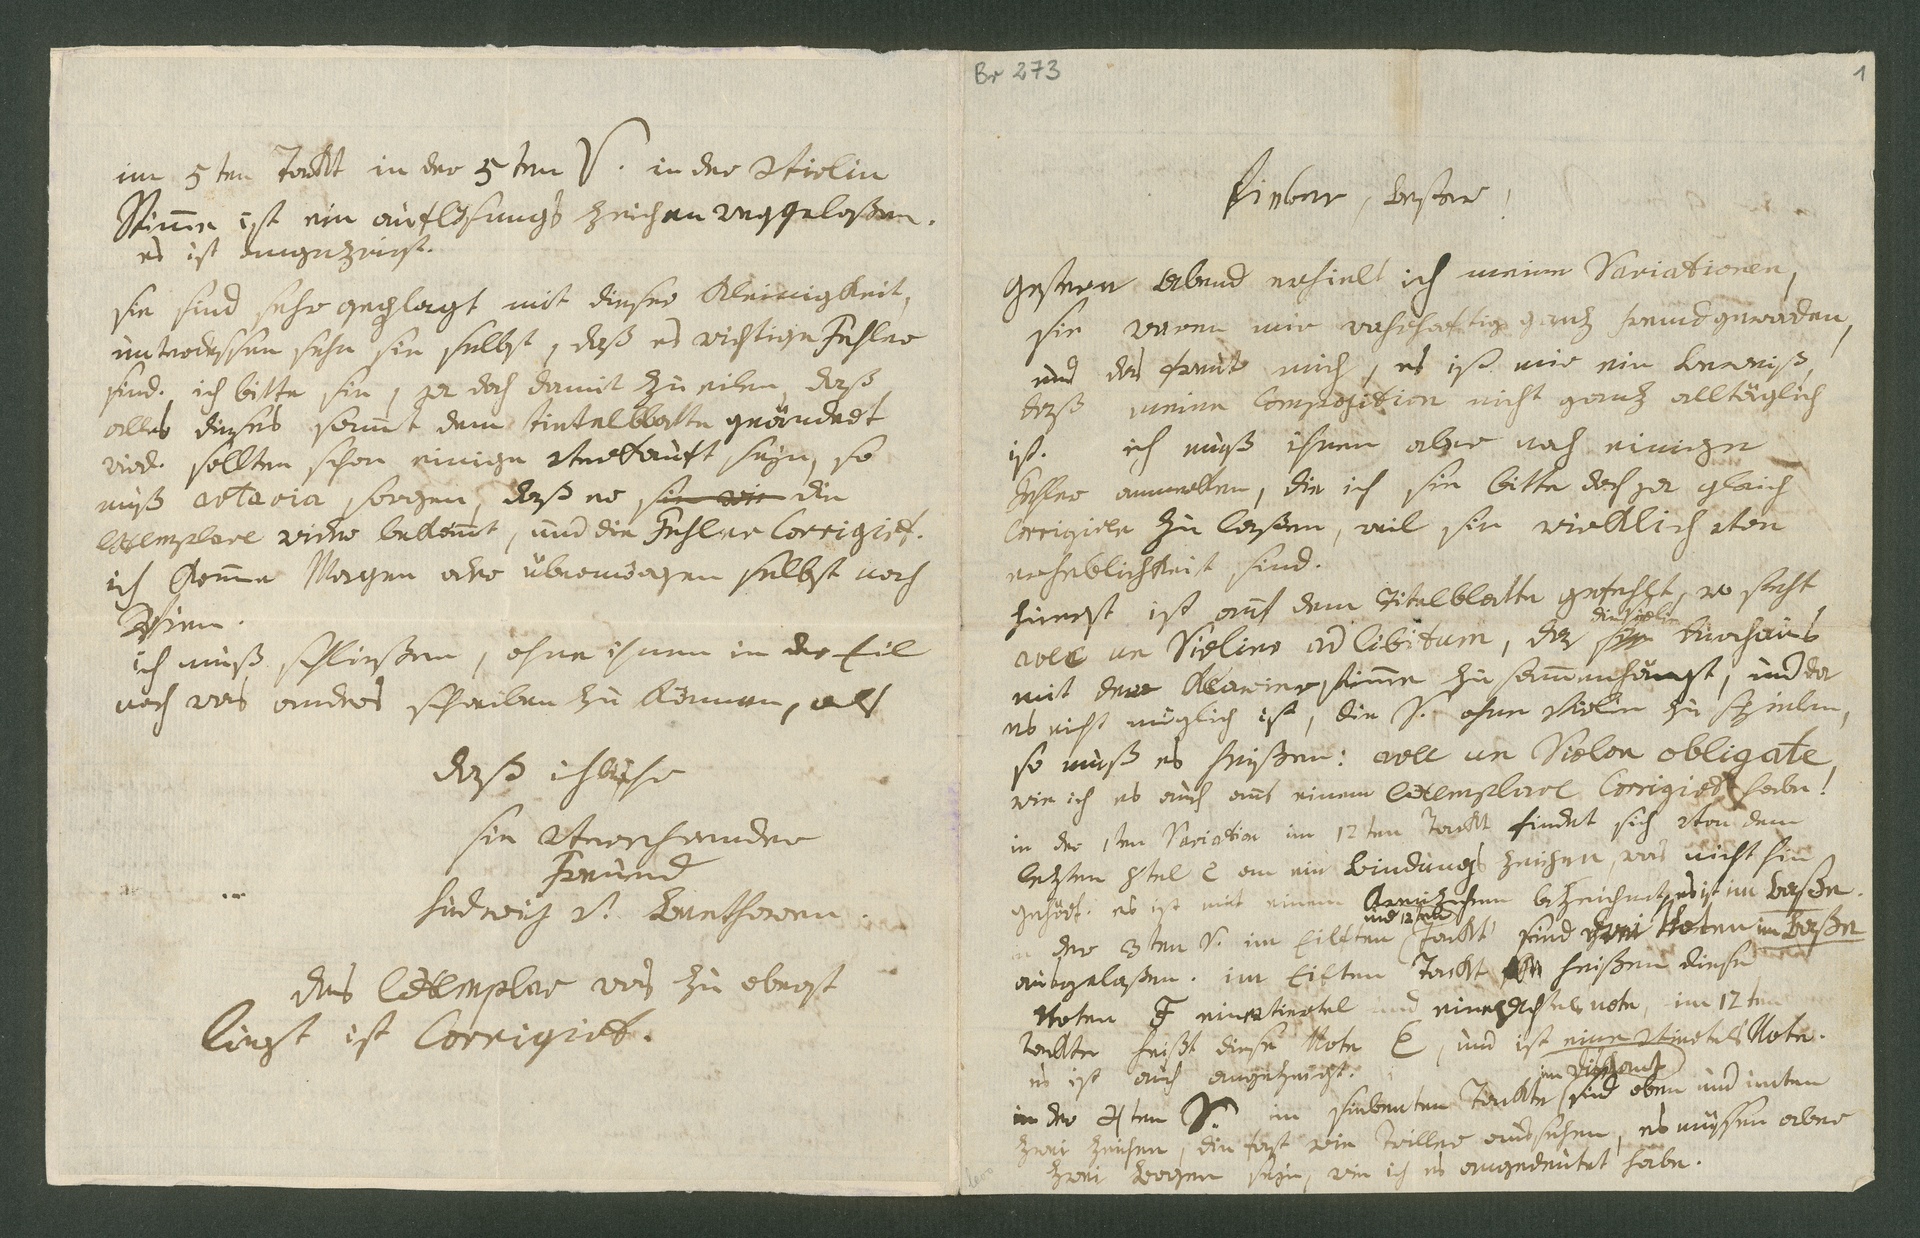 Br 273
1
Lieber, bester!
gestern Abend erhielt ich meine Variationen,
sie waren mir wahrhaftig ganz fremd geworden,
und das freut mich, es ist mir ein beweiß,
daß meine Composition nicht ganz alltäglich
ist. ich muß ihnen aber noch einige
Fehler anmerken, die ich sie bitte doch ja gleich
Corrigiren zu laßen, weil sie wirklich von
erheblichkeit sind.
zuerst ist auf dem Titelblatte gefehlt, wo steht
avec un Violino ad libitum, da die violin durchaus
mit der Klawierstimme zusammenhängt, und da
es nicht möglich ist, die V. ohne Violin zu spielen,
so muß es heißen: avec un Violon obligate,
wie ich es auch auf einem Exemplare Corrigirt habe!
in der 1ten Variation im 12ten Tackt findet sich von dem
letzten 8tel C an ein bindungs zeichen, was nicht hin
gehört. es ist mit einem Kreuzchen bezeichnet, es ist im baße.
in der 3ten V. im Eilften und 12ten Tackt sind zwei Noten im Baße
ausgelaßen. im Eilften Tackt heißen diese
Noten F ein viertel und eine Achtel note, im 12ten
tackte heißt diese Note E, und ist eine Viertels Note.
es ist auch angezeigt.
in der 4ten V. im siebenten Tackte im Diskant sind oben und unten
zwei zeichen, die fast wie Triller aussehen, es müssen aber
zwei Bogen sejn, wie ich es angedeutet habe.
im 5ten Tackt in der 5ten V. in der Violin
Stimme ist ein auflösungs zeichen weggelaßen.
es ist angezeigt.
sie sind sehr geplagt mit dieser Kleinigkeit,
unterdessen sehn sie selbst, daß es wichtige Fehler
sind. ich bitte sie, ja doch damit zu eilen, daß
alles dieses sammt dem Tietelblatte geändert
wird. sollten schon einige Verkauft sejn, so
muß artaria sorgen, daß er sie wie die
Exemplare wider bekömmt, und die Fehler Corrigirt.
ich komme Morgen oder übermorgen selbst nach
Wien.
ich muß schließen, ohne ihnen in der Eil
noch was anders schreiben zu können, als
daß ich
sie Verehrender
Freund
Ludwig v. Beethowen.
das Exemplar was zu oberst
liegt ist Corrigirt.